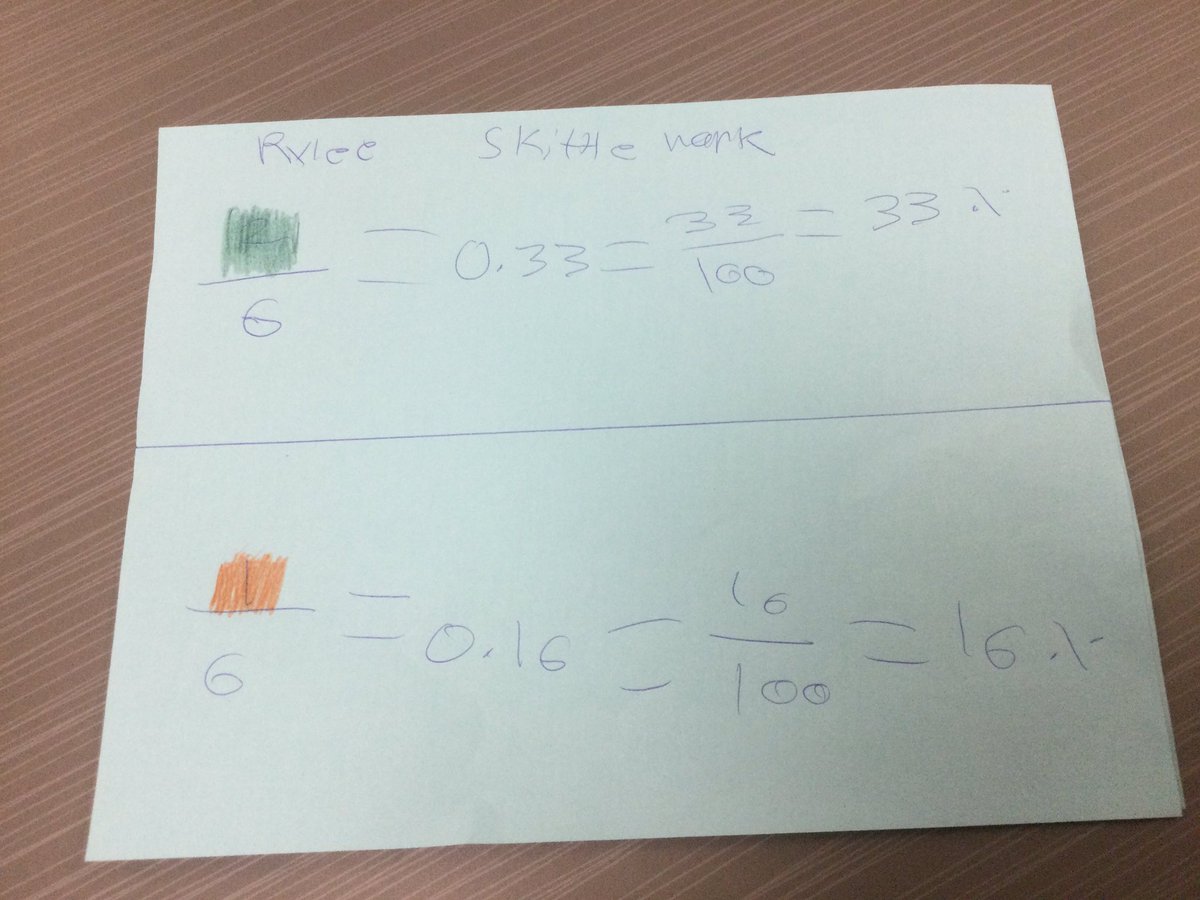 Rylee Skittle work
2/6 = 0.33 = 33/100 = 33 %
1/6 = 0.16 = 16/100 = 16 %